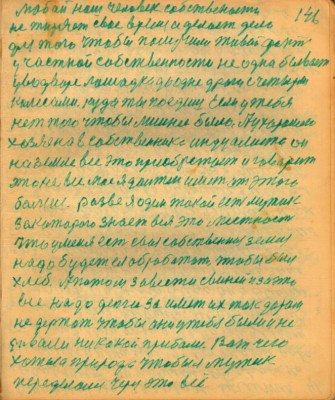 146
любой наш человек собственность
не теряет свое время а делает дело
для того чтобы получили живой факт
у частной собственности не одна бывает
уводворе лошадка а две друга с четырьмя
колесами, куда ты поедиш если у тебя
нет того чтобы мешнее было. А ухорошего
хозяена в собственника он
на земле все это приобретает и говорит
это не все мое я зайтем имет от этого
больше. Разве я один такой есть мужик
за которого знает вся это местность
что у меня ест своя собственая земля
надо будет ее обработат чтобы был
хлеб. А потом завести свиней и за это
все надо деюги за имет их так даром
не держат чтобы они у тебя были и не
давали никакой прибыли. Вот чего
хотела природа чтобы мужик
переделали через это все